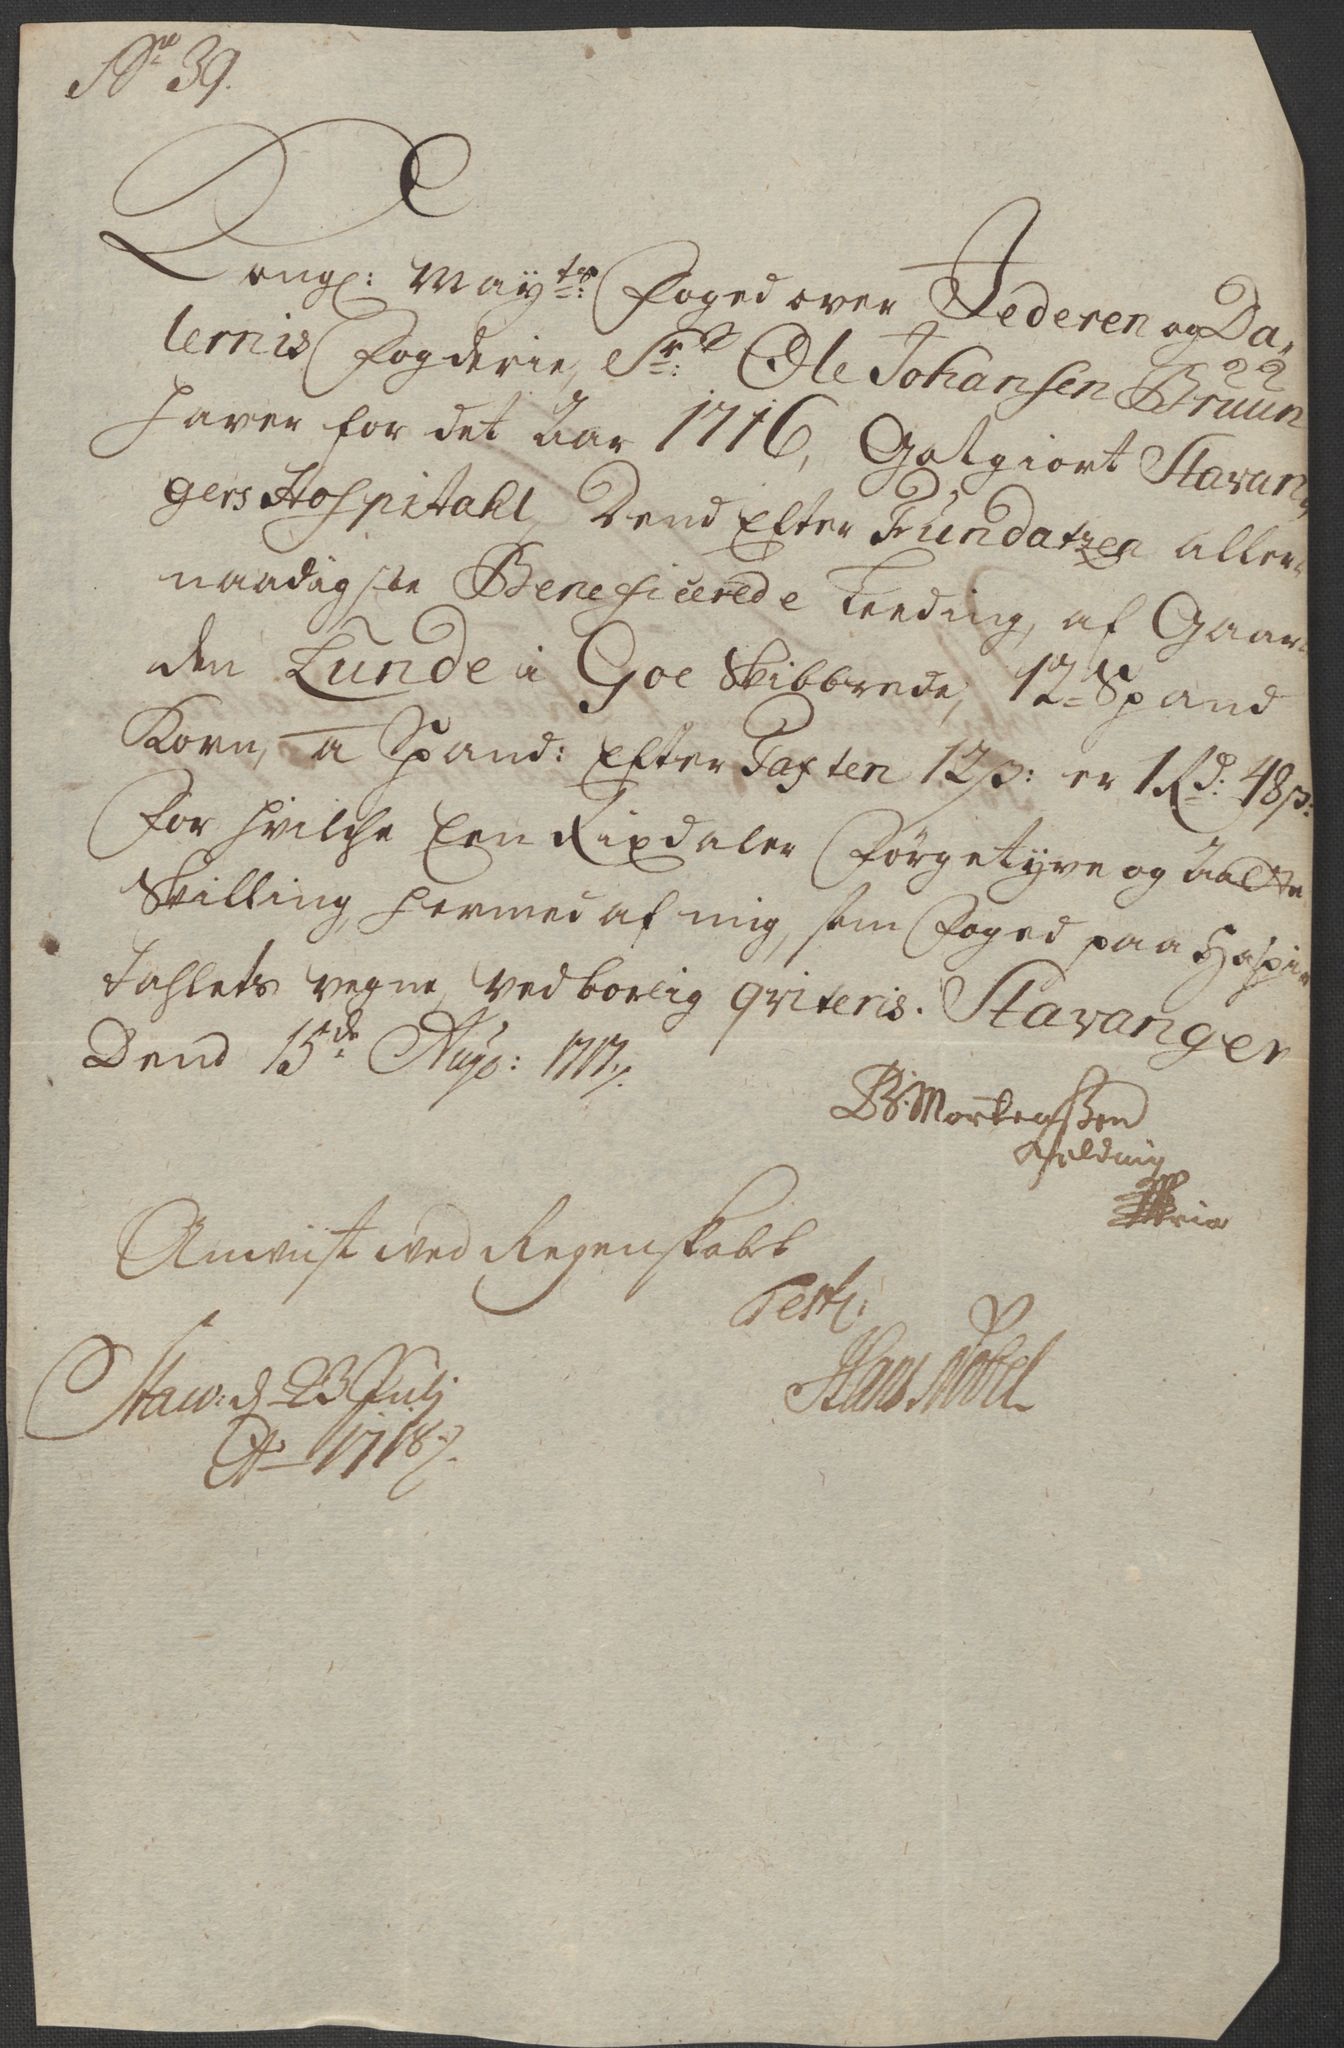 No 39.
Kongl: Mayts: Foged over Jederen og Da,
lernis Fogderie, Sr: Ole Johansen Bruun
haver for det Aar 1716, Gotgiort Stavan,
gers Hospitahl, Dend Efter Fundatzen aller,
naadigste Beneficerede Leeding, af Gaar,
den Lunde i Goe Skibbrede, 12 Spand
Korn, a Spand: Efter Taxten 12 s: er 1 Rd: 48 s:
For hvilche Een Rixdaler Förgetyve og Aatte
Skilling hermed af mig, som Foged paa Hospi,
tahlets vegne, vedborlig qviteris. Stavanger
Dend 15de Aug: 1717.
B: Mortenssen
Anviist ved Regenskabet
Test:
Hans Nobel
Staw: d 23 Julj
Ao 1718